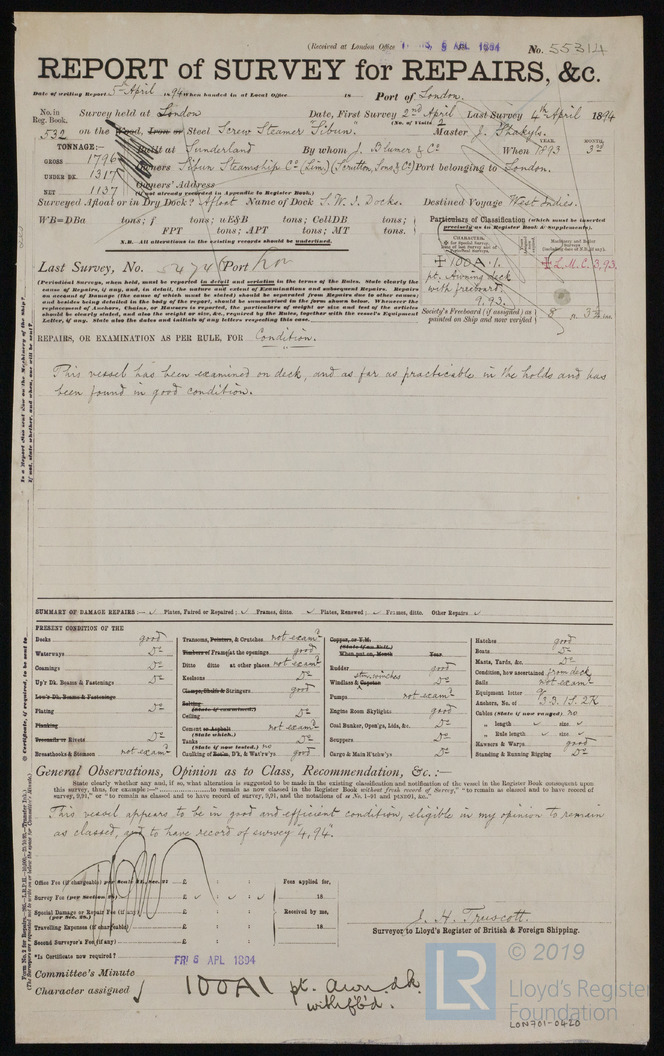 (Received at London Office 6 APL 1894
No. 55314
REPORT of SURVEY for REPAIRS, &c.
Date of writing Report 5th April 1894 When handed in at Local Office 18 Port of London.
No. in Reg. Book. Survey held at London Date, First Survey 2nd April Last Survey 4th April 1894
(No. of Visits 2
532 on the Wood, Iron or Steel Screw Steamer "Sibun." Master J.
TONNAGE:— Built at Sunderland By whom J. Blumer & Co. When 1893 MONTH. 3rd
GROSS 1796 Owners Sibun Steamship Co. (Lim) (Scrutton, Sons & Co) Port belonging to London.
UNDER DK. 1317 Owners' Address
NET 1137 (If not already recorded in Appendix to Register Book.)
Surveyed Afloat or in Dry Dock? Afloat Name of Dock S.W.I. Docks. Destined Voyage West Indies.
WB=DBa tons; f tons; uE&B tons; CellDB tons;
FPT tons; APT tons; MT tons.
N.B. All alterations in the existing records should be underlined.
Particulars of Classification (which must be inserted precisely as in Register Book & Supplements).
CHARACTER.
✠ 100A.1.
pt. Awning deck
with freeboard.
9.93.
✠ L.M.C. 3,93.
Last Survey, No. 5474 Port Lon
(Periodical Surveys, when held, must be reported in detail and seriatim in the terms of the Rules. State clearly the
cause of Repairs, if any, and, in detail, the nature and extent of Examinations and subsequent Repairs. Repairs
on account of Damage (the cause of which must be stated) should be separated from Repairs due to other causes;
and besides being detailed in the body of the report, should be summarised in the form shown below.
Society's Freeboard (if assigned) as painted on Ship and now verified
REPAIRS, OR EXAMINATION AS PER RULE, FOR Condition.
This vessel has been examined on deck, and as far as practicable in the holds and has
been found in good condition.
SUMMARY OF DAMAGE REPAIRS:— Plates, Faired or Repaired; Frames, ditto. Plates, Renewed; Frames, ditto. Other Repairs
PRESENT CONDITION OF THE
Decks good
Waterways Do
Coamings Do
Up'r Dk. Beams & Fastenings Do
Low'r Dk. Beams & Fastenings
Plating Do
Planking
Treenails or Rivets Do
Breasthooks & Stemson not examd
Transoms, Pointers, & Crutches not examd
Timbers of Frame at the openings good
Ditto ditto at other places not examd
Keelsons Do
Clamps, Shelfs & Stringers good
Salting (State when)
Ceiling Do
Cement or Asphalt (State which.) not examd
Tanks (State if now tested.) no Do
Caulking of D'k, & Wat'rw'ys good
Copper, or Y.M. (State if on Felt.)
When put on, Month Year
Rudder good
Windlass & Capstan Do
Pumps not examd
Engine Room Skylights good
Coal Bunker, Open'gs, Lids, &c. Do
Scuppers Do
Cargo & Main H'tchw'ys Do
Hatches good
Boats Do
Masts, Yards, &c. Do
Condition, how ascertained from deck
Sails not examd
Equipment letter
Anchors, No. of 3.B. 1S. 2K
Cables (State if now ranged) no
" length size
" Rule length size
Hawsers & Warps good
Standing & Running Rigging Do
General Observations, Opinion as to Class, Recommendation, &c.:—
State clearly whether and, if so, what alteration is suggested to be made in the existing classification and notification of the vessel in the Register Book consequent upon
this survey, thus, for example:—" to remain as now classed in the Register Book without fresh record of Survey," "to remain as classed and to have record of
survey, 9,90," or "to remain as classed and to have record of survey, 9,91, and the notations of ss No. 1-91 and ptnD91, &c."
This vessel appears to be in good and efficient condition, eligible in my opinion to remain
as classed, and to have record of survey "4,94".
Office Fee (if chargeable) £ : :
Survey Fee (per Section 28) £ : :
Special Damage or Repair Fee (if any) (per Sec. 28.) £ : :
Travelling Expenses (if chargeable) £ : :
Second Surveyor's Fee (if any) £ : :
Fees applied for, 18
Received by me, 18
J. H. Truscott.
Surveyor to Lloyd's Register of British & Foreign Shipping.
*Is Certificate now required?
Committee's Minute FRI 6 APL 1894
Character assigned 100A1 pt. awn. dk.
with f'b'd.
LR © 2019
Lloyd's Register
Foundation
LON701-0420